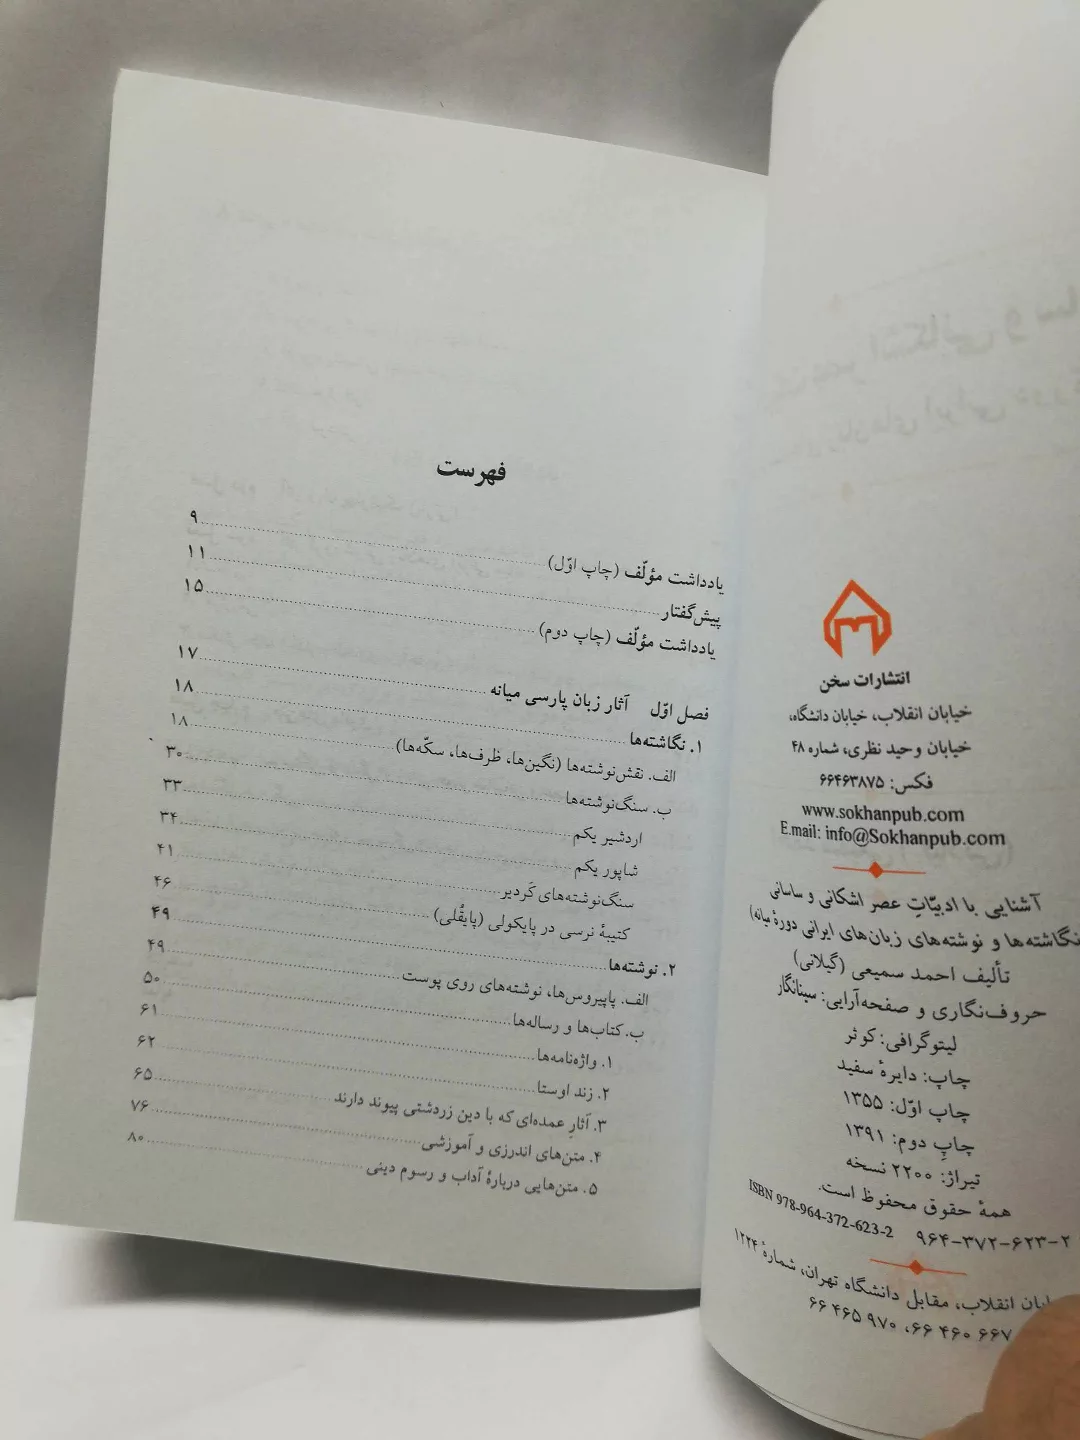 انتشارات سخن
خیابان انقلاب، خیابان دانشگاه،
خیابان وحید نظری، شماره ۴۸
فکس: ۶۶۴۶۳۸۷۵
www.sokhanpub.com
E.mail: info@Sokhanpub.com
آشنایی با ادبیّاتِ عصر اشکانی و ساسانی
نگاشته‌ها و نوشته‌های زبان‌های ایرانی دورهٔ میانه)
تألیف احمد سمیعی (گیلانی)
حروف‌نگاری و صفحه‌آرایی: سینانگار
لیتوگرافی: کوثر
چاپ: دایرهٔ سفید
چاپ اوّل: ۱۳۵۵
چاپِ دوم: ۱۳۹۱
تیراژ: ۲۲۰۰ نسخه
همهٔ حقوق محفوظ است.
ISBN 978-964-372-623-2 ۹۶۴-۳۷۲-۶۲۳-۲
انقلاب، مقابل دانشگاه تهران، شمارهٔ ۱۲۲۴
۶۶ ۴۶۰ ۶۶۷، ۶۶ ۴۶۵ ۹۷۰
فهرست
یادداشت مؤلّف (چاپ اوّل) ۹
پیش‌گفتار ۱۱
یادداشت مؤلّف (چاپ دوم) ۱۵
فصل اوّل آثار زبان پارسی میانه ۱۷
۱. نگاشته‌ها ۱۸
الف. نقش‌نوشته‌ها (نگین‌ها، ظرف‌ها، سکّه‌ها) ۱۸
ب. سنگ‌نوشته‌ها ۳۰
اردشیر یکم ۳۳
شاپور یکم ۳۴
سنگ‌نوشته‌های کَردیر ۴۱
کتیبهٔ نرسی در پایکولی (پایقُلی) ۴۶
۲. نوشته‌ها ۴۹
الف. پاپیروس‌ها، نوشته‌های روی پوست ۴۹
ب. کتاب‌ها و رساله‌ها ۵۰
۱. واژه‌نامه‌ها ۶۱
۲. زند اوستا ۶۲
۳. آثارِ عمده‌ای که با دین زردشتی پیوند دارند ۶۵
۴. متن‌های اندرزی و آموزشی ۷۶
۵. متن‌هایی دربارهٔ آداب و رسوم دینی ۸۰